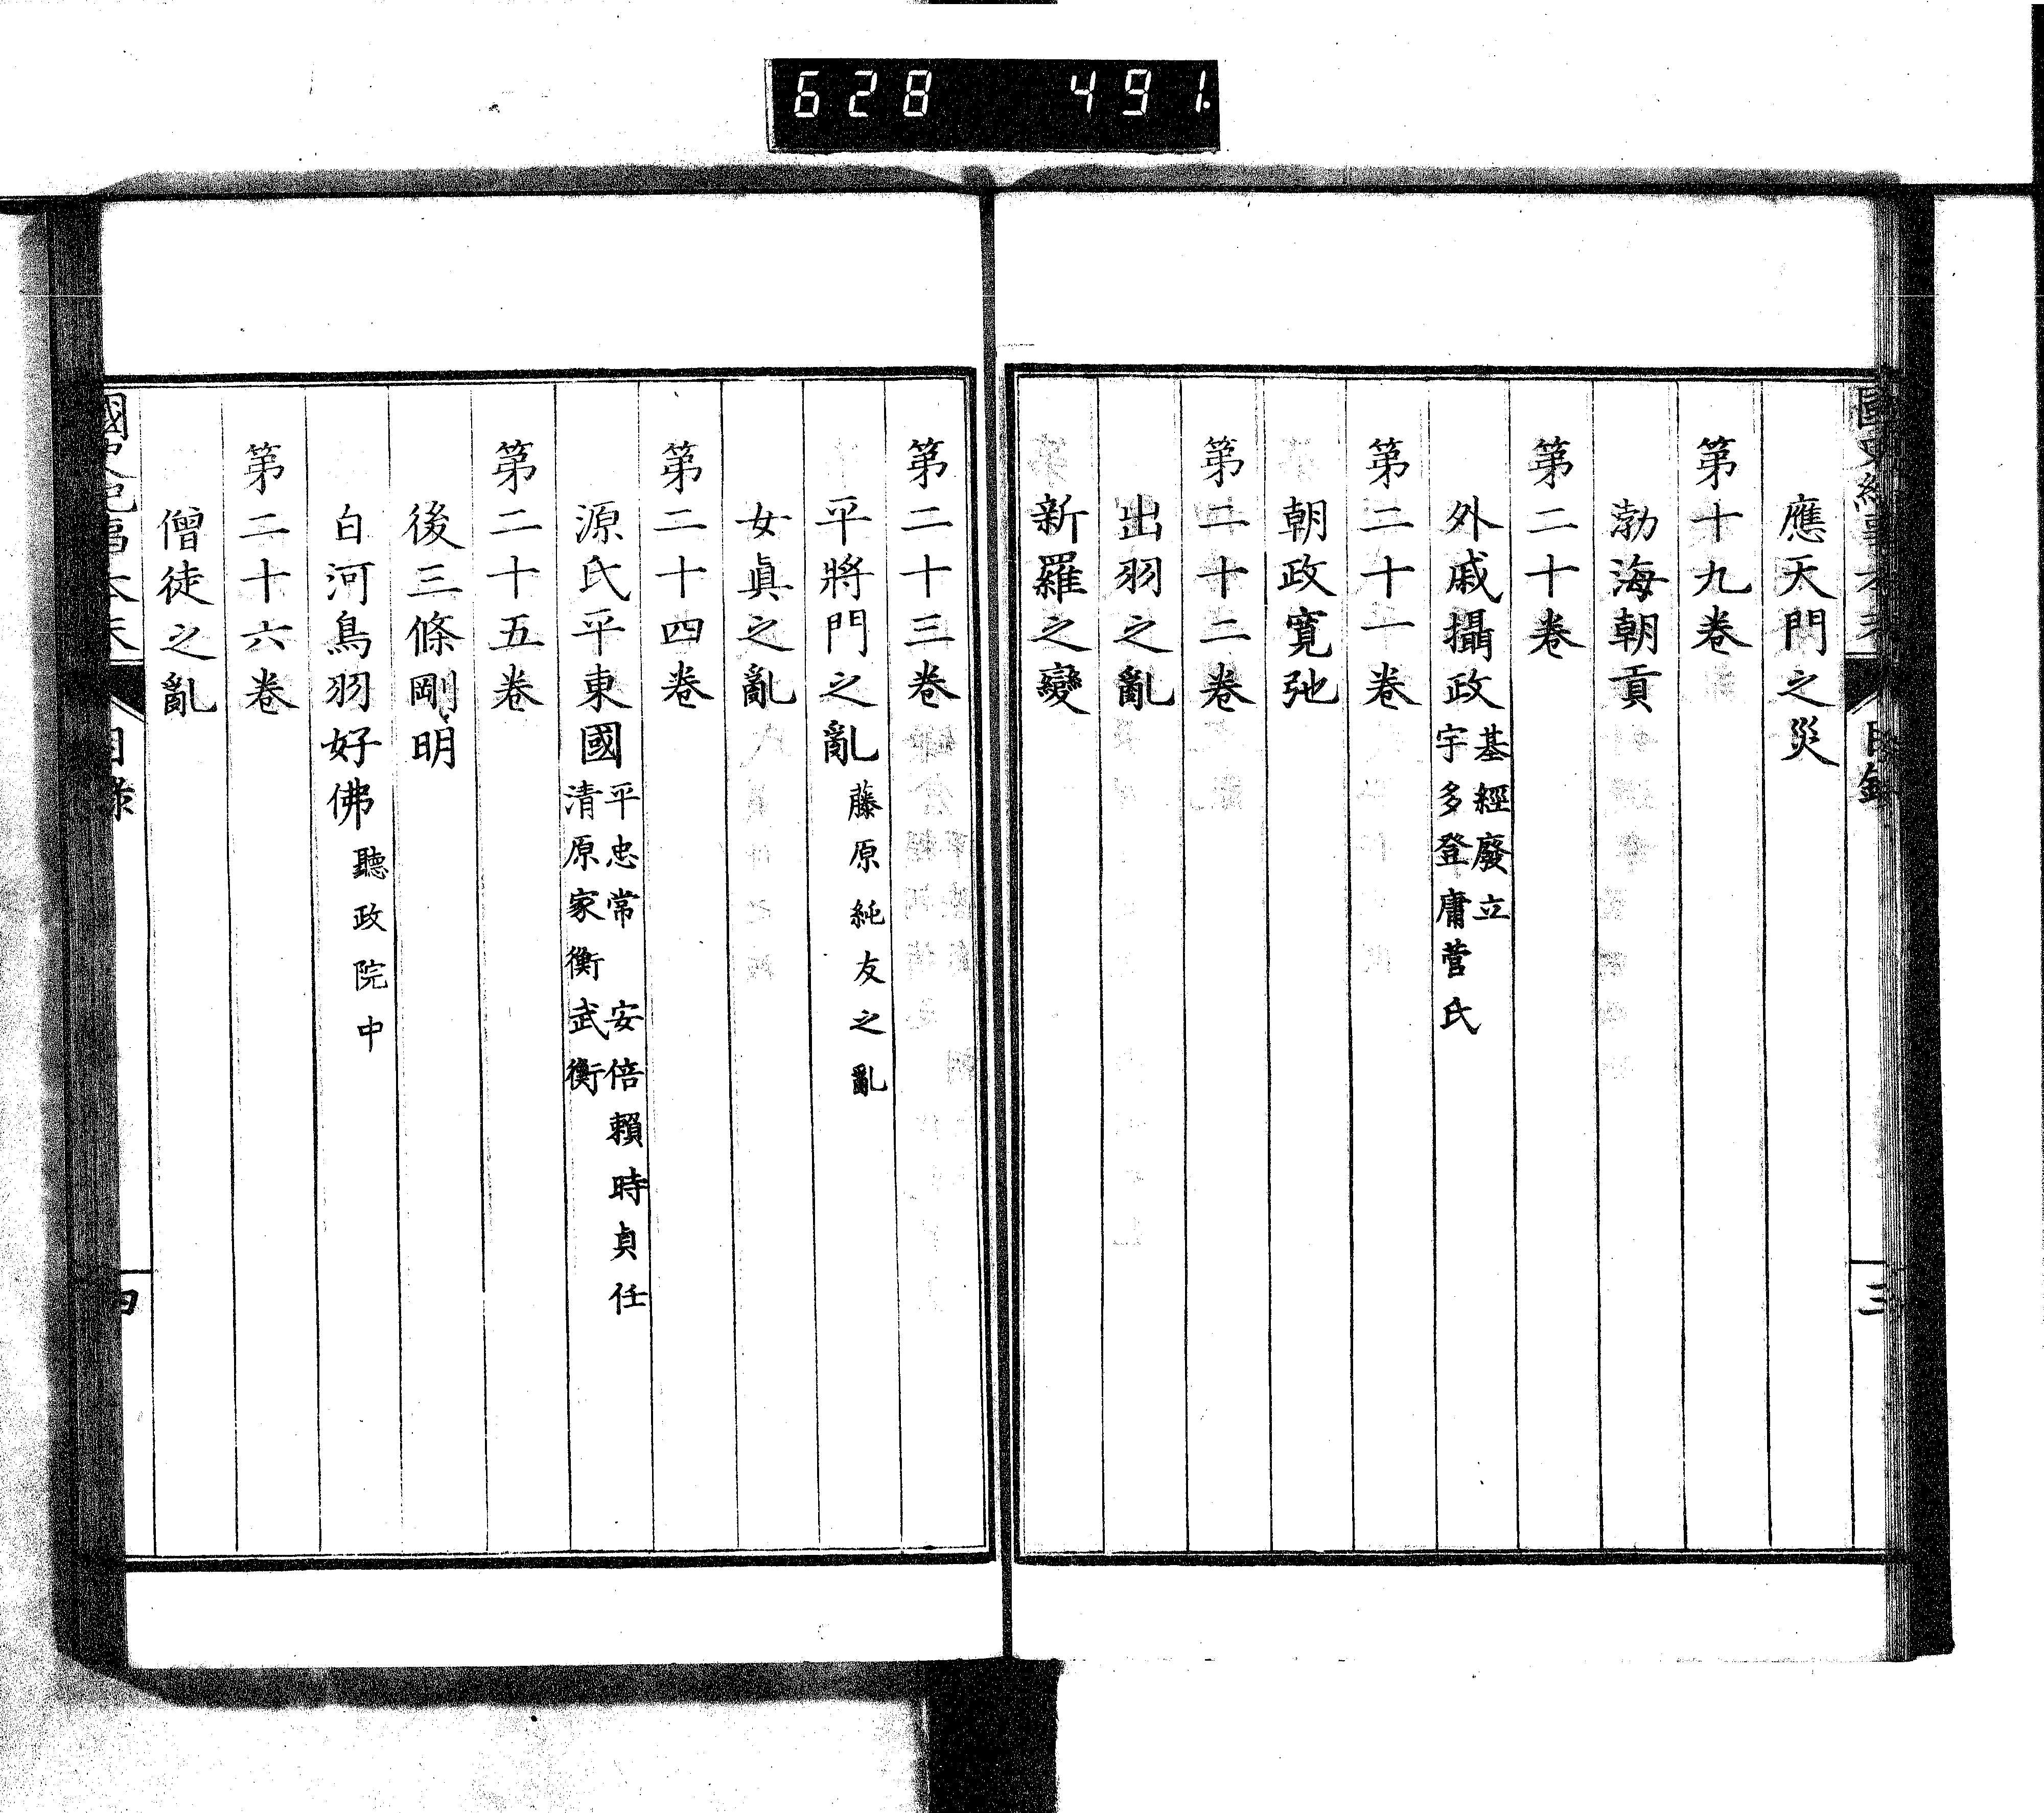 628 491
國史紀事本末 目錄 三
應天門之災
第十九卷
渤海朝貢
第二十卷
外戚攝政 基經廢立
宇多登庸菅氏
第二十一卷
朝政寬弛
第二十二卷
出羽之亂
新羅之變
第二十三卷
平將門之亂 藤原純友之亂
女眞之亂
第二十四卷
源氏平東國 平忠常 安倍賴時貞任
清原家衡武衡
第二十五卷
後三條剛明
白河鳥羽好佛 聽政院中
第二十六卷
僧徒之亂
國史紀事本末 目錄 四